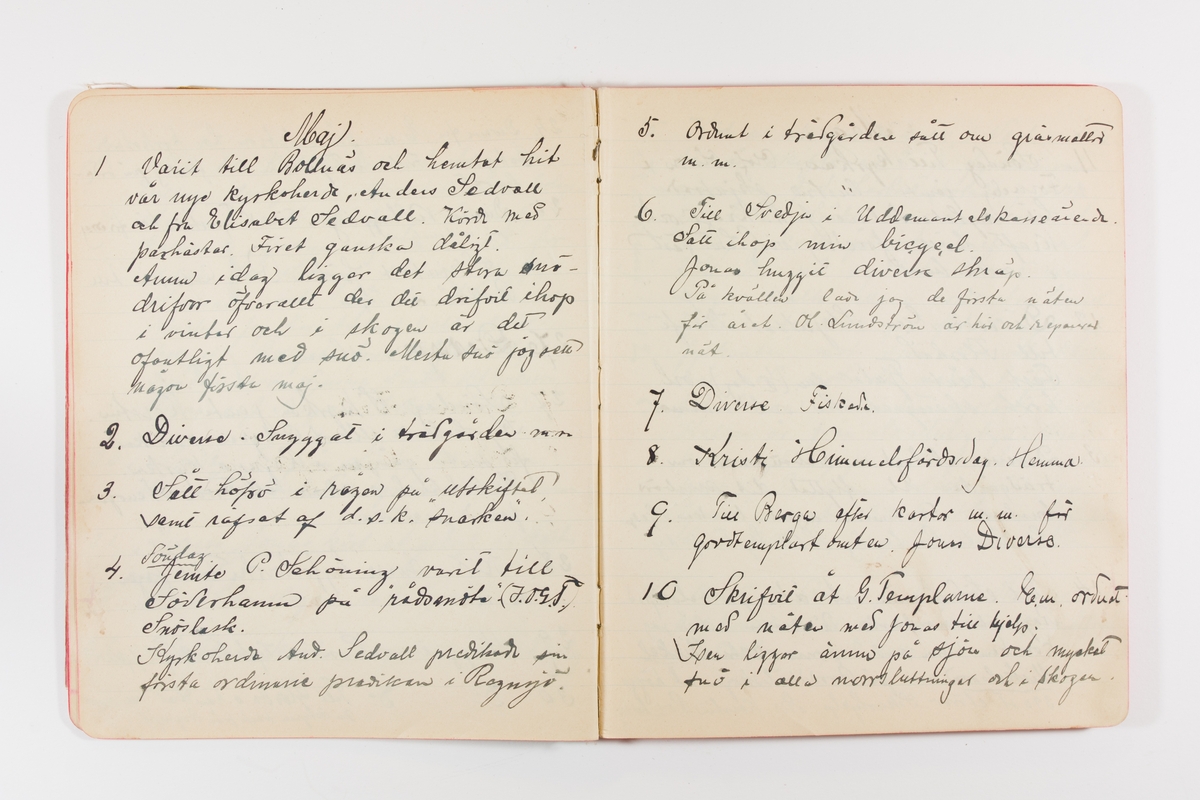 Maj.
1 Varit till Bollnäs och hemtat hit
vår nye kyrkoherde, Anders Sedvall
och fru Elisabet Sedvall. Körde med
parhästar. Föret ganska dåligt.
Ännu idag ligger det stora snö-
drifvor öfverallt der det drifvit ihop
i vinter och i skogen är det
ofantligt med snö. Mesta snö jag sett
någon första maj.
2. Diverse. Snyggat i trädgården m.m
3. Sått höfrö i rågen på "utskiftet"
samt räfsat af d.s.k. "snarken".
Söndag
4. Jemte P. Schöning varit till
Söderhamn på "rådsmöte" (I.O.G.T.)
Snöslask.
Kyrkoherde And. Sedvall predikade sin
första ordinarie predikan i Rogsjö.
5. Ordnat i trädgården sått om gräsmattor
m.m.
6. Till Svedja i Uddemantelskasseärende.
Satt ihop min bicycel.
Jonas huggit diverse skräp.
På kvällen lade jag de första näten
för året. Ol. Lundström är här och reparerar
nät.
7. Diverse. Fiskade.
8. Kristi Himmelsfärdsdag. Hemma.
9. Till Berga efter kartor m.m. för
godtemplartomten. Jonas Diverse.
10 Skrifvit åt G. Templarne. Em. ordnat
med näten med Jonas till hjelp.
Isen ligger ännu på sjön och mycket
snö i alla norrsluttningar och i skogen.